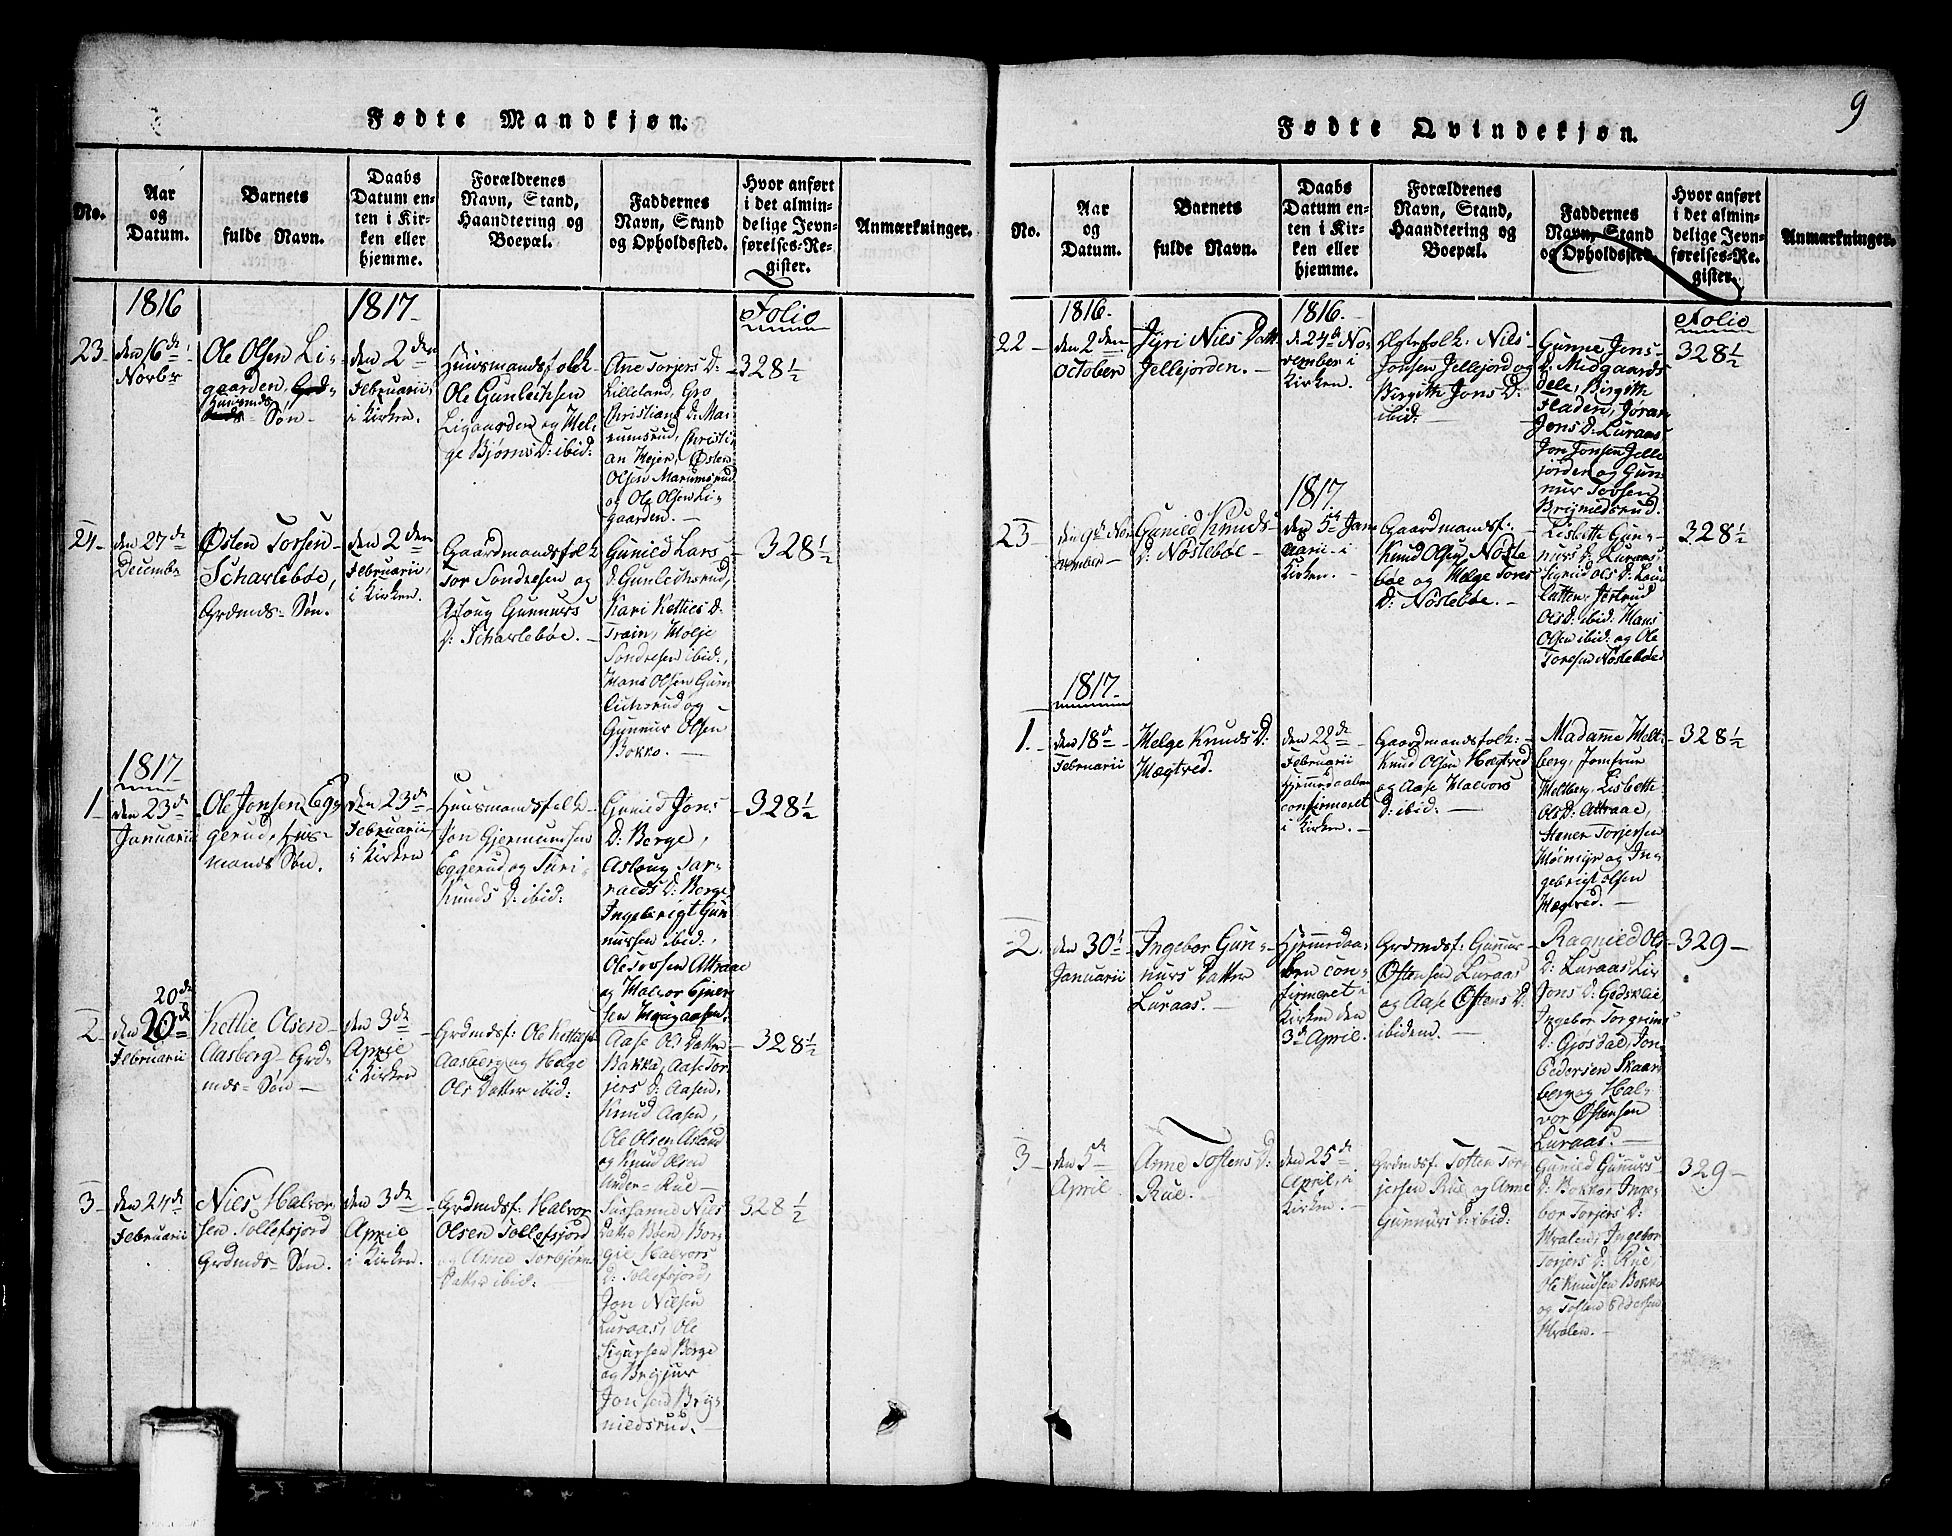 Fødte Mandkjøn.
No.
Aar
og
Datum.
Barnets
fulde Navn.
Daabs
Datum en-
ten i Kir-
ken eller
hjemme.
Forældrenes
Navn, Stand,
Haandtering og
Boepæl.
Faddernes
Navn, Stand
og Opholdssted.
Hvor anført
i det almin-
delige Jevn-
førelses-Re-
gister.
Anmærkninger.
1816
1817
Folio
23
den 16de
Novbr
Ole Olsen Li-
gaarden,
Huusmds
Søn
den 2den
Februarii,
i Kirken.
Huusmandsfolk
Ole Gunleiksen
Ligaarden og Hel-
ge Bjørns D: ibid:
Ane Torjers D:
Lilleland, Gro
Christians D: Ma-
rumsrud, Christi-
an Mejer, Østen
Olsen Marumsrud
og Ole Olsen Li-
gaarden.
328½
24
den 27de
Decembr
Østen Torsen
Scharlebøe,
Grdmds Søn.
den 2den
Februarii,
i Kirken.
Gaardmandsfolk
Tor Sondresen og
Asloug Gunnurs
D: Scharlebøe.
Gunild Lars
D: Gunleichsrud,
Kari Retties D:
Train, Holje
Sondresen ibid:,
Hans Olsen Gun-
leichsrud og
Gunnur Olsen
Bokko.
328½
1817
1
den 23de
Januarii
Ole Jonsen Eg-
gerud, Hus-
mands Søn.
den 23de
Februarii
i Kirken
Huusmandsfolk
Jon Gjermundsen
Eggerud og Turi
Knuds D: ibid:
Gunild Jons
D: Berge,
Asloug Tar-
ralds D: Berge
Ingebrigt Gun-
nursen ibid:,
Ole Tovsen Attraae
og Halvor Ejner-
sen Haugaasen.
328½
2
20de
den 20de
Februarii
Kettil Olsen
Aasberg Grd-
mds Søn
den 3de
April
i Kirken
Grdmdsf: Ole Kettilsen
Aasberg og Helge
Ols Datter ibid:
Aase Ols Datter
Bakka, Aase Tor-
jers D: Aasen,
Knud Aasen,
Ole Olsen Asland
og Knud Olsen
Under-Rue
328½
3
den 24de
Februarii
Nils Halvor-
sen Tollefsjord
Grdmds Søn.
den 3de
April
i Kirken.
Grdmdsf: Halvor
Olsen Tollefsjord
og Anne Torbjørns
Datter ibid:
Susanne Nils
Datter Bøen, Bor-
gil Halvors
D: Tollefsjord,
Jon Nilsen
Luraas, Ole
Sigursen Berge
og Brynjur
Jonsen Bryn-
nildsrud.
328½
9
Fødte Qvindekjøn.
No.
Aar
og
Datum.
Barnets
fulde Navn.
Daabs
Datum en-
ten i Kir-
ken eller
hjemme.
Forældrenes
Navn, Stand,
Haandtering og
Boepæl.
Faddernes
Navn, Stand
og Opholdssted.
Hvor anført
i det almin-
delige Jevn-
førelses-Re-
gister.
Anmærkninger.
1816.
1816.
Folio
22
den 2den
October
Jyri Nils Datt:
Jellejorden.
den 24de No-
vember i
Kirken.
Ægtefolk: Nils
Jonsen Jellejord og
Birgith Jons D:
ibid:
Gunne Jons
D: Midgaards
dele, Birgith
Fladen, Jøran
Jons D: Luraas,
Jon Jonsen Jelle
jorden og Gun-
nur Tovsen
Brynildsrud.
328½
1817
23
den 9de No-
vember
Gunild Knuds
D: Nøslebøe
den 5te Janu
uarii i
Kirken.
Gaardmandsf:
Knud Olsen Nøsle
bøe og Helge Tores
D: Nøslebøe.
Lisbette Gun-
nurs D: Luraas
Sigrud Ols D: Lous
Latten, Jertrud
Ols D: ibid: Hans
Olsen ibid: og Ole
Toresen Nøslebøe
328½
1817
1.
den 18de
Februarii
Helge Knuds D:
Hægtved.
den 22de
Februarii
Hjemmedaaben
confirmeret
i Kirken.
Gaardmandsfolk:
Knud Olsen Hægtved
og Aase Halvors
D: ibid:
Madamme Helt-
berg, Jomfrue
Heltberg, Lisbette
Ols D: Attraae,
Stener Torjersen
Møimyr og In-
gebrigt Olsen
Hægtved.
328½
2.
den 30te
Januarii
Ingebor Gun-
nurs Datter
Luraas.
Hjemmedaa-
ben con-
firmeret i
Kirken den
3de April.
Grdmdsf: Gunnur
Østensen Luraas
og Aase Østens D:
ibidem.
Ragnild Ols
D: Luraas Liv
Jons D: Godsklie,
Ingebor Torgrims
D: Gjøsdal, Jon
Pedersen Skaar-
berg og Hal-
vor Østensen
Luraas.
329
3
den 5te
April
Anne Tostens D:
Rue.
den 25de
April, i
Kirken.
Grdmdsf: Tosten Tor-
jersen Rue og Anne
Gunnurs D: ibid:
Gunild Gunnurs
D: Bokko, Inge-
bor Torjers D:
Hvalen, Ingebor
Torjers D: Rue,
Ole Knudsen Bokko
og Tosten Pedersen
Hvalen.
329